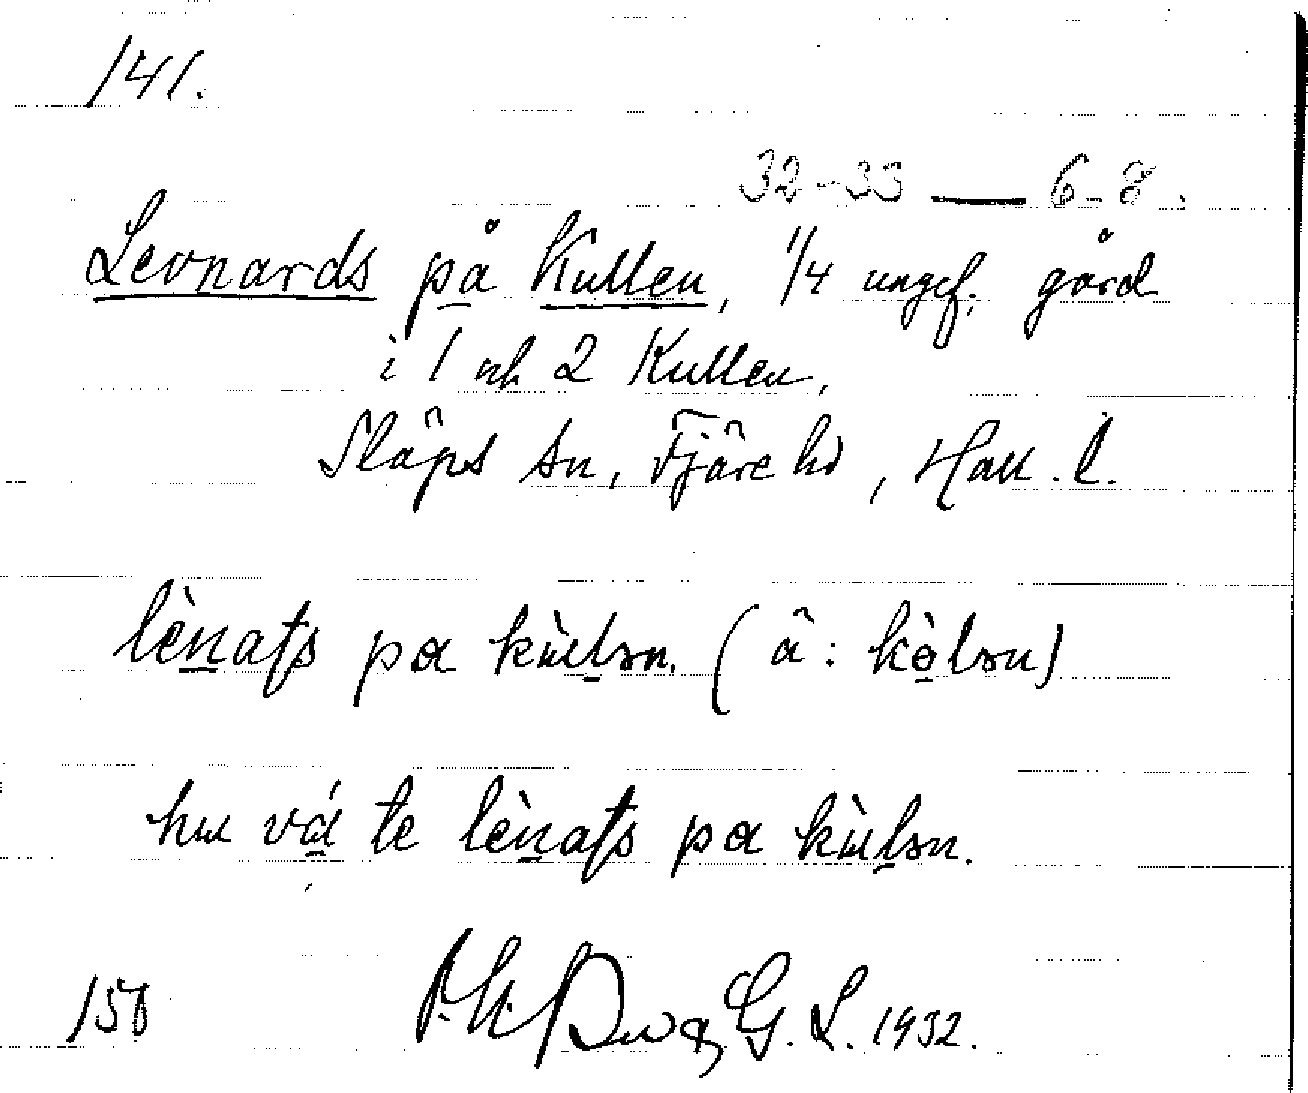 141.
32-33 — 6-8.
Leonards på Kullen, 1/4 ungef. gård
i 1 och 2 Kullen,
Släps sn, Fjäre hd, Hall. l.
lènats pa kùlən. (ä: kòlən)
hu vá te lènats pa kùlən.
150
G. L. 1932.